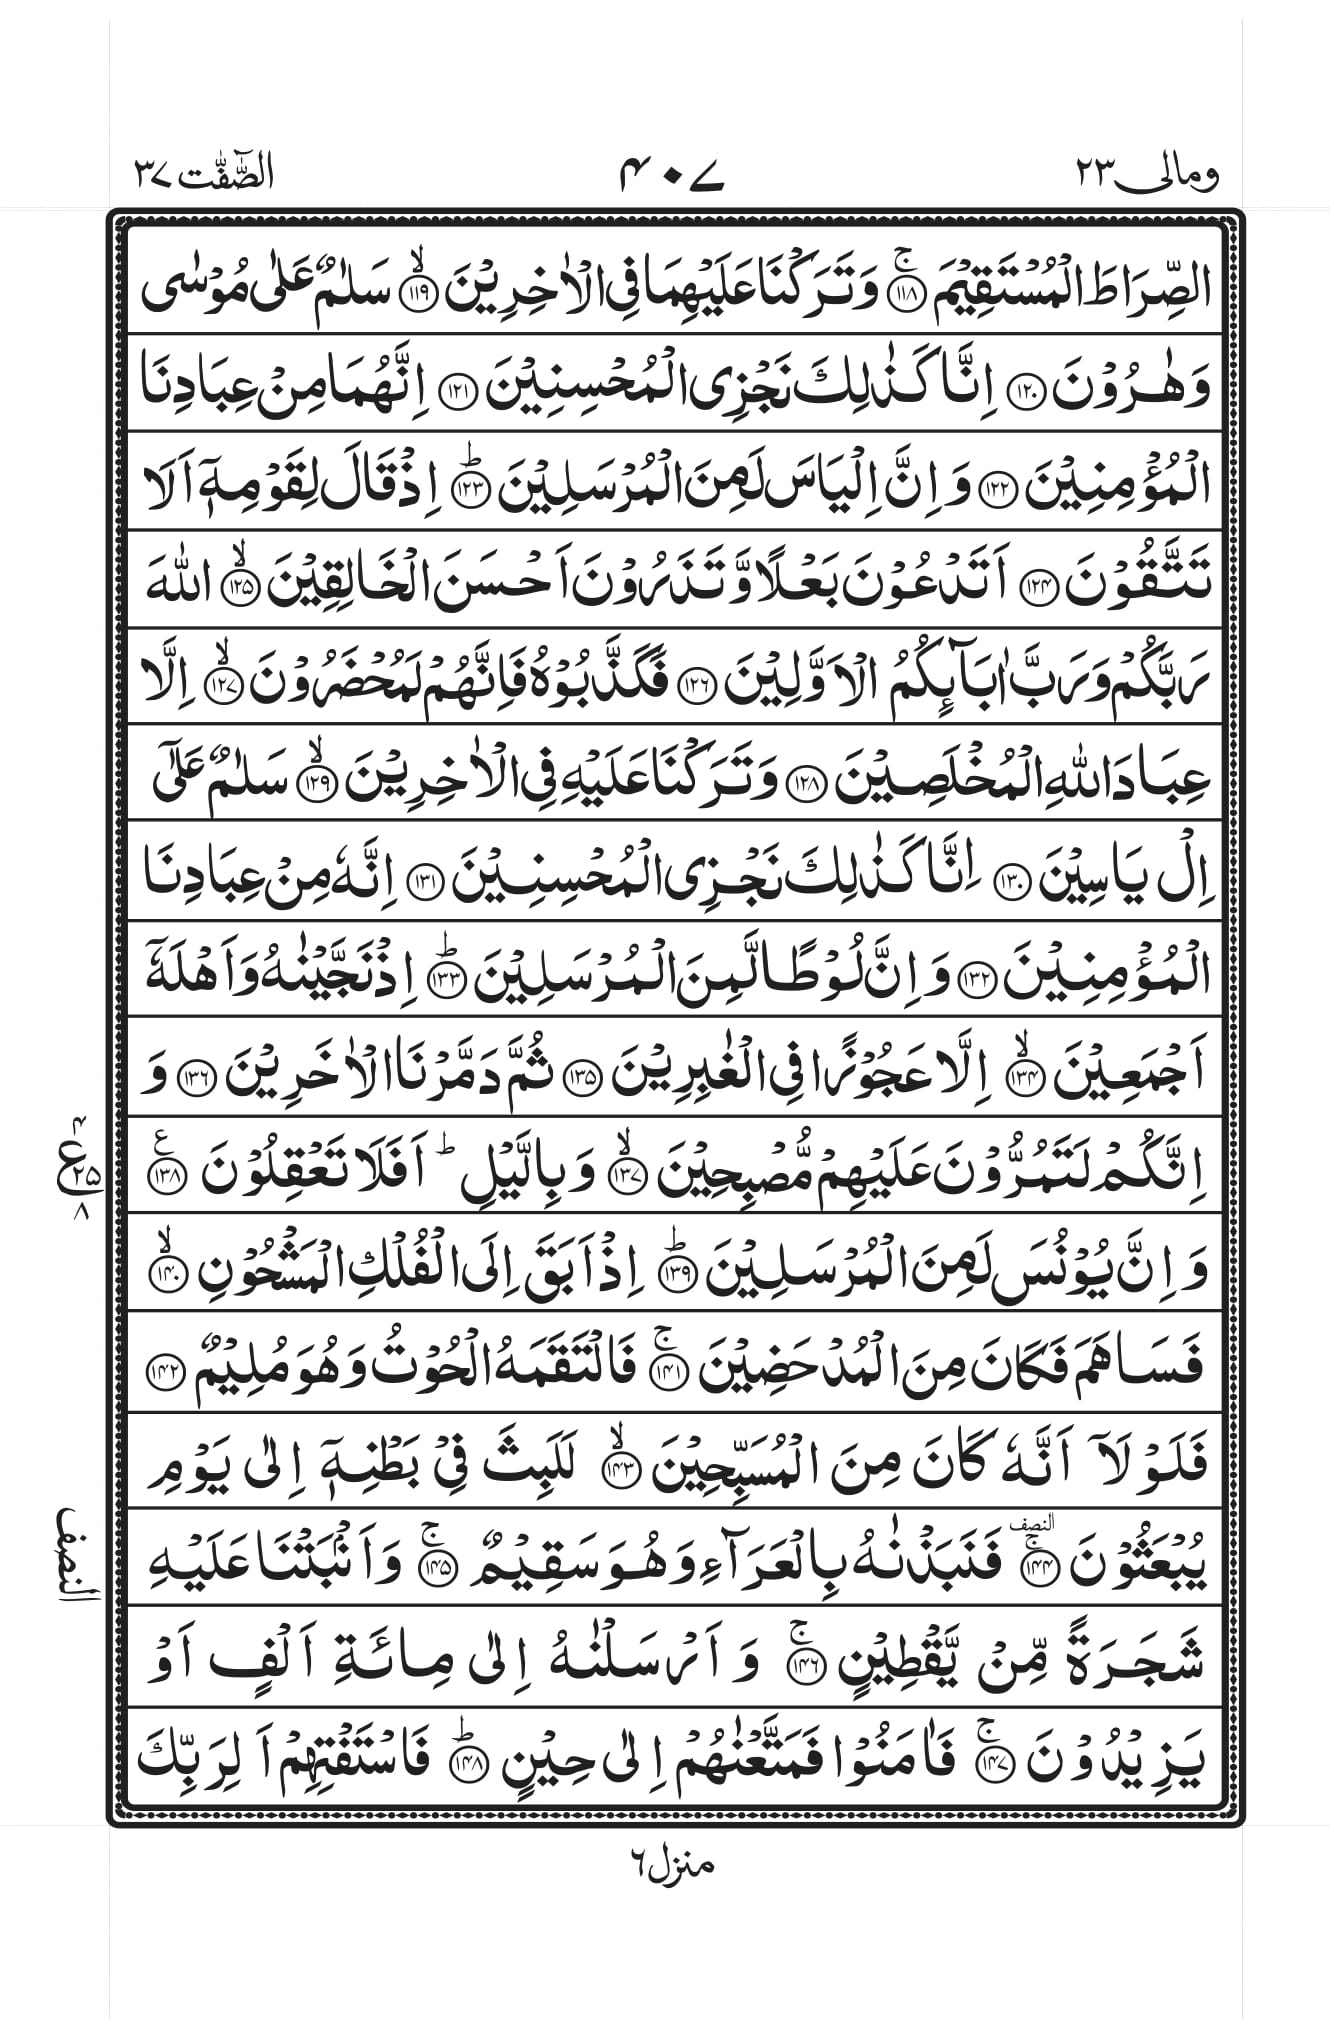 ومالی ۲۳
۴۰۷
الصّٰٓفّٰت ۳۷
الصِّرَاطَ الْمُسْتَقِيْمَ ۚ‏﴿۱۱۸﴾ وَتَرَكْنَا عَلَيْهِمَا فِى الْاٰخِرِيْنَ ۙ‏﴿۱۱۹﴾ سَلٰمٌ عَلٰى مُوْسٰى
وَهٰرُوْنَ ﴿۱۲۰﴾ اِنَّا كَذٰلِكَ نَجْزِى الْمُحْسِنِيْنَ ﴿۱۲۱﴾ اِنَّهُمَا مِنْ عِبَادِنَا
الْمُؤْمِنِيْنَ ﴿۱۲۲﴾ وَ اِنَّ اِلْيَاسَ لَمِنَ الْمُرْسَلِيْنَ ؕ‏﴿۱۲۳﴾ اِذْ قَالَ لِقَوْمِهٖۤ اَلَا
تَتَّقُوْنَ ﴿۱۲۴﴾ اَتَدْعُوْنَ بَعْلًا وَّ تَذَرُوْنَ اَحْسَنَ الْخَالِقِيْنَ ۙ‏﴿۱۲۵﴾ اللّٰهَ
رَبَّكُمْ وَ رَبَّ اٰبَآئِكُمُ الْاَوَّلِيْنَ ﴿۱۲۶﴾ فَكَذَّبُوْهُ فَاِنَّهُمْ لَمُحْضَرُوْنَ ۙ‏﴿۱۲۷﴾ اِلَّا
عِبَادَ اللّٰهِ الْمُخْلَصِيْنَ ﴿۱۲۸﴾ وَتَرَكْنَا عَلَيْهِ فِى الْاٰخِرِيْنَ ۙ‏﴿۱۲۹﴾ سَلٰمٌ عَلٰٓى
اِلْ يَاسِيْنَ ﴿۱۳۰﴾ اِنَّا كَذٰلِكَ نَجْزِى الْمُحْسِنِيْنَ ﴿۱۳۱﴾ اِنَّهٗ مِنْ عِبَادِنَا
الْمُؤْمِنِيْنَ ﴿۱۳۲﴾ وَ اِنَّ لُوْطًا لَّمِنَ الْمُرْسَلِيْنَ ؕ‏﴿۱۳۳﴾ اِذْ نَجَّيْنٰهُ وَ اَهْلَهٗۤ
اَجْمَعِيْنَ ۙ‏﴿۱۳۴﴾ اِلَّا عَجُوْزًا فِى الْغٰبِرِيْنَ ﴿۱۳۵﴾ ثُمَّ دَمَّرْنَا الْاٰخَرِيْنَ ﴿۱۳۶﴾ وَ
اِنَّكُمْ لَتَمُرُّوْنَ عَلَيْهِمْ مُّصْبِحِيْنَ ۙ‏﴿۱۳۷﴾ وَ بِالَّيْلِ ؕ اَفَلَا تَعْقِلُوْنَ ﴿۱۳۸﴾ ع
وَ اِنَّ يُوْنُسَ لَمِنَ الْمُرْسَلِيْنَ ؕ‏﴿۱۳۹﴾ اِذْ اَبَقَ اِلَى الْفُلْكِ الْمَشْحُوْنِ ۙ‏﴿۱۴۰﴾
فَسَاهَمَ فَكَانَ مِنَ الْمُدْحَضِيْنَ ۚ‏﴿۱۴۱﴾ فَالْتَقَمَهُ الْحُوْتُ وَهُوَ مُلِيْمٌ ﴿۱۴۲﴾
فَلَوْ لَاۤ اَنَّهٗ كَانَ مِنَ الْمُسَبِّحِيْنَ ۙ‏﴿۱۴۳﴾ لَلَبِثَ فِىْ بَطْنِهٖۤ اِلٰى يَوْمِ
يُبْعَثُوْنَ ۚ‏﴿۱۴۴﴾ النصف فَنَبَذْنٰهُ بِالْعَرَآءِ وَهُوَ سَقِيْمٌ ۚ‏﴿۱۴۵﴾ وَ اَنْۢبَتْنَا عَلَيْهِ
شَجَرَةً مِّنْ يَّقْطِيْنٍ ۚ‏﴿۱۴۶﴾ وَ اَرْسَلْنٰهُ اِلٰى مِائَةِ اَلْفٍ اَوْ
يَزِيْدُوْنَ ۚ‏﴿۱۴۷﴾ فَاٰمَنُوْا فَمَتَّعْنٰهُمْ اِلٰى حِيْنٍ ؕ‏﴿۱۴۸﴾ فَاسْتَفْتِهِمْ اَلِرَبِّكَ
ع ۲۵ ۴ ۸
النصف
منزل ۶